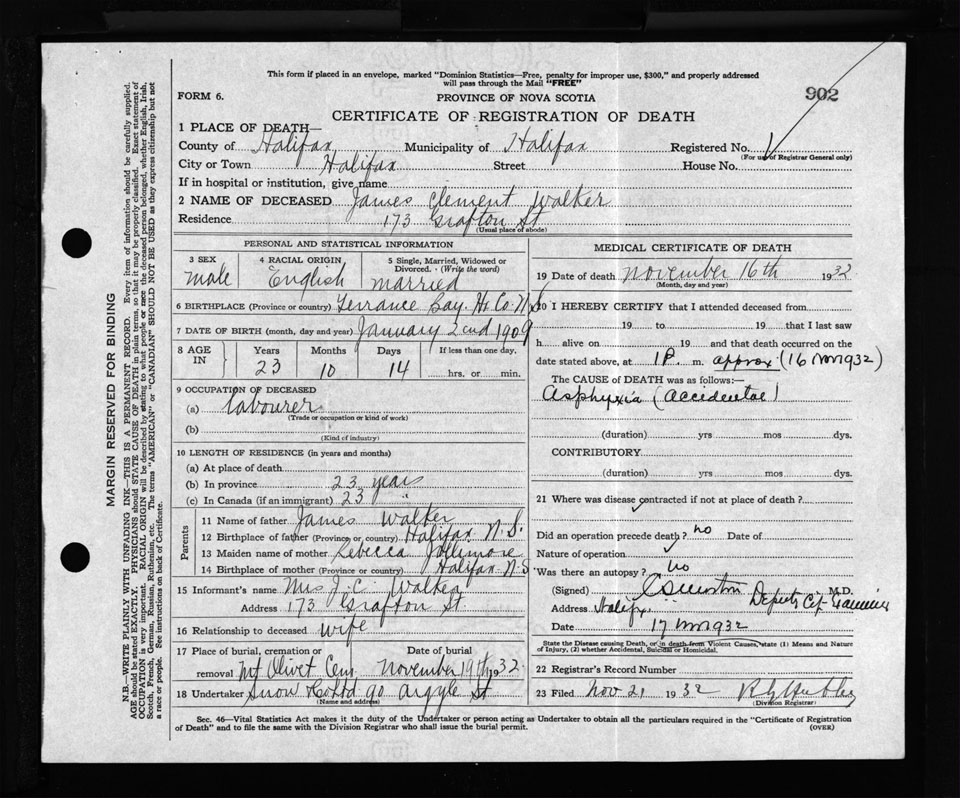 This form if placed in an envelope, marked "Dominion Statistics—Free, penalty for improper use, $300," and properly addressed
will pass through the Mail "FREE"
902
FORM 6.
PROVINCE OF NOVA SCOTIA
CERTIFICATE OF REGISTRATION OF DEATH
1 PLACE OF DEATH—
County of Halifax Municipality of Halifax Registered No.
(For use of Registrar General only)
City or Town Halifax Street House No.
If in hospital or institution, give name
2 NAME OF DECEASED James Clement Walker
Residence 173 Grafton St
(Usual place of abode)
PERSONAL AND STATISTICAL INFORMATION
3 SEX 4 RACIAL ORIGIN 5 Single, Married, Widowed or
Divorced. (Write the word)
male English married
6 BIRTHPLACE (Province or country) Terrance Bay Hx Co. N.S
7 DATE OF BIRTH (month, day and year) January 2cnd 1909
8 AGE IN Years Months Days If less than one day.
23 10 14 hrs. or min.
9 OCCUPATION OF DECEASED
(a) labourer
(Trade or occupation or kind of work)
(b)
(Kind of industry)
10 LENGTH OF RESIDENCE (in years and months)
(a) At place of death
(b) In province 23 years
(c) In Canada (if an immigrant) 23 "
Parents
11 Name of father James Walker
12 Birthplace of father (Province or country) Halifax N.S.
13 Maiden name of mother Rebecca Jollimore
14 Birthplace of mother (Province or country) Halifax N.S
15 Informant's name Mrs J.C. Walker
Address 173 Grafton St.
16 Relationship to deceased wife
17 Place of burial, cremation or
removal Mt Olivet Cem. November 19th 1932
18 Undertaker Snow Co Ltd 90 Argyle St
(Name and address)
MEDICAL CERTIFICATE OF DEATH
19 Date of death November 16th 1932
(Month, day and year)
20 I HEREBY CERTIFY that I attended deceased from
19 to 19 that I last saw
h alive on 19 and that death occurred on the
date stated above, at 1 P. m. approx (16 Nov 1932)
The CAUSE of DEATH was as follows:—
Asphyxia (accidental)
(duration) yrs mos dys.
CONTRIBUTORY
(duration) yrs mos dys.
21 Where was disease contracted if not at place of death?
Did an operation precede death? no Date of
Nature of operation
Was there an autopsy? no
(Signed) M.D.
Address Halifx. Deputy
Date 17 Nov 1932
State the Disease causing Death, or in death from Violent Causes, state (1) Means and Nature
of Injury, (2) whether Accidental, Suicidal or Homicidal.
22 Registrar's Record Number
23 Filed Nov 21 1932
(Division Registrar)
Sec. 46—Vital Statistics Act makes it the duty of the Undertaker or person acting as Undertaker to obtain all the particulars required in the "Certificate of Registration
of Death" and to file the same with the Division Registrar who shall issue the burial permit. (OVER)
MARGIN RESERVED FOR BINDING
N.B.—WRITE PLAINLY WITH UNFADING INK—THIS IS A PERMANENT RECORD. Every item of information should be carefully supplied.
AGE should be stated EXACTLY. PHYSICIANS should STATE CAUSE OF DEATH in plain terms, so that it may be properly classified. Exact statement of
OCCUPATION is very important. RACIAL ORIGIN will be described by stating to what people or race the deceased person belonged, whether English, Irish,
Scotch, French, German, Russian, Ruthenian, etc. The terms "AMERICAN" or "CANADIAN" SHOULD NOT BE USED as they express citizenship but not
a race or people. See instructions on back of Certificate.